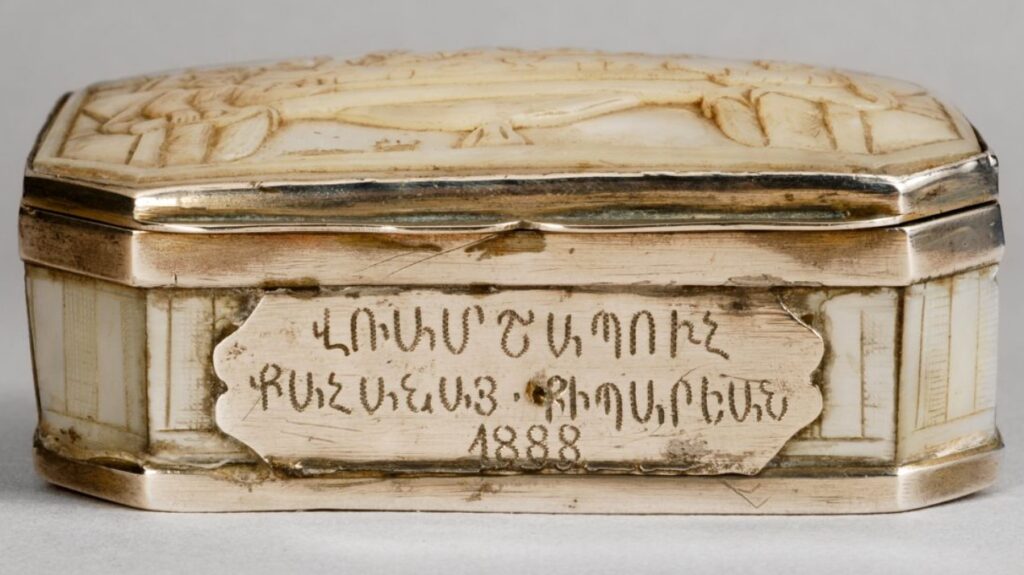 ՎՌԱՄ ՇԱՊՈՒՀ
ՔԱՀԱՆԱՅ · ՔԻՊԱՐԵԱՆ
1888